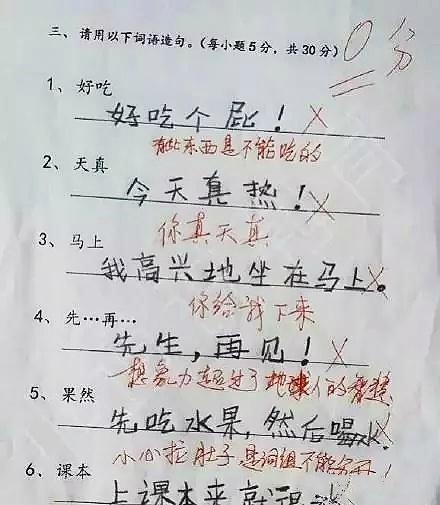 三、请用以下词语造句。（每小题5分，共30分）
0分
1、好吃
好吃个屁！
有些东西是不能吃的
2、天真
今天真热！
你真天真
3、马上
我高兴地坐在马上。
你给我下来
4、先…再…
先生，再见！
想象力超过了地球人的智慧
5、果然
先吃水果，然后喝水
小心拉肚子 是词组不能分开！
6、课本
上课本来就很